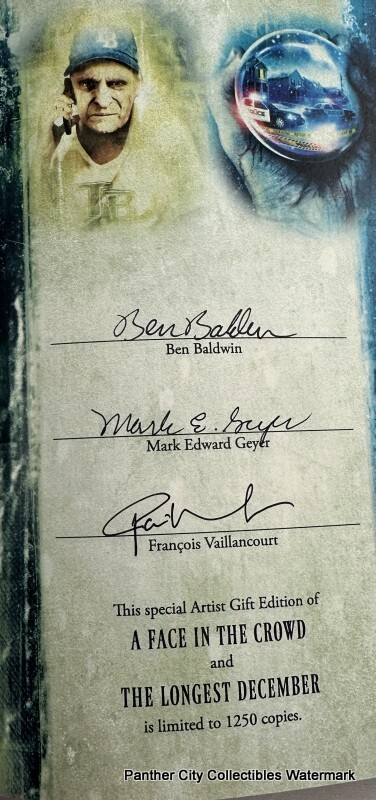 TB
Ben Baldwin
Ben Baldwin
Mark E. Geyer
Mark Edward Geyer
François Vaillancourt
This special Artist Gift Edition of
A FACE IN THE CROWD
and
THE LONGEST DECEMBER
is limited to 1250 copies.
Panther City Collectibles Watermark